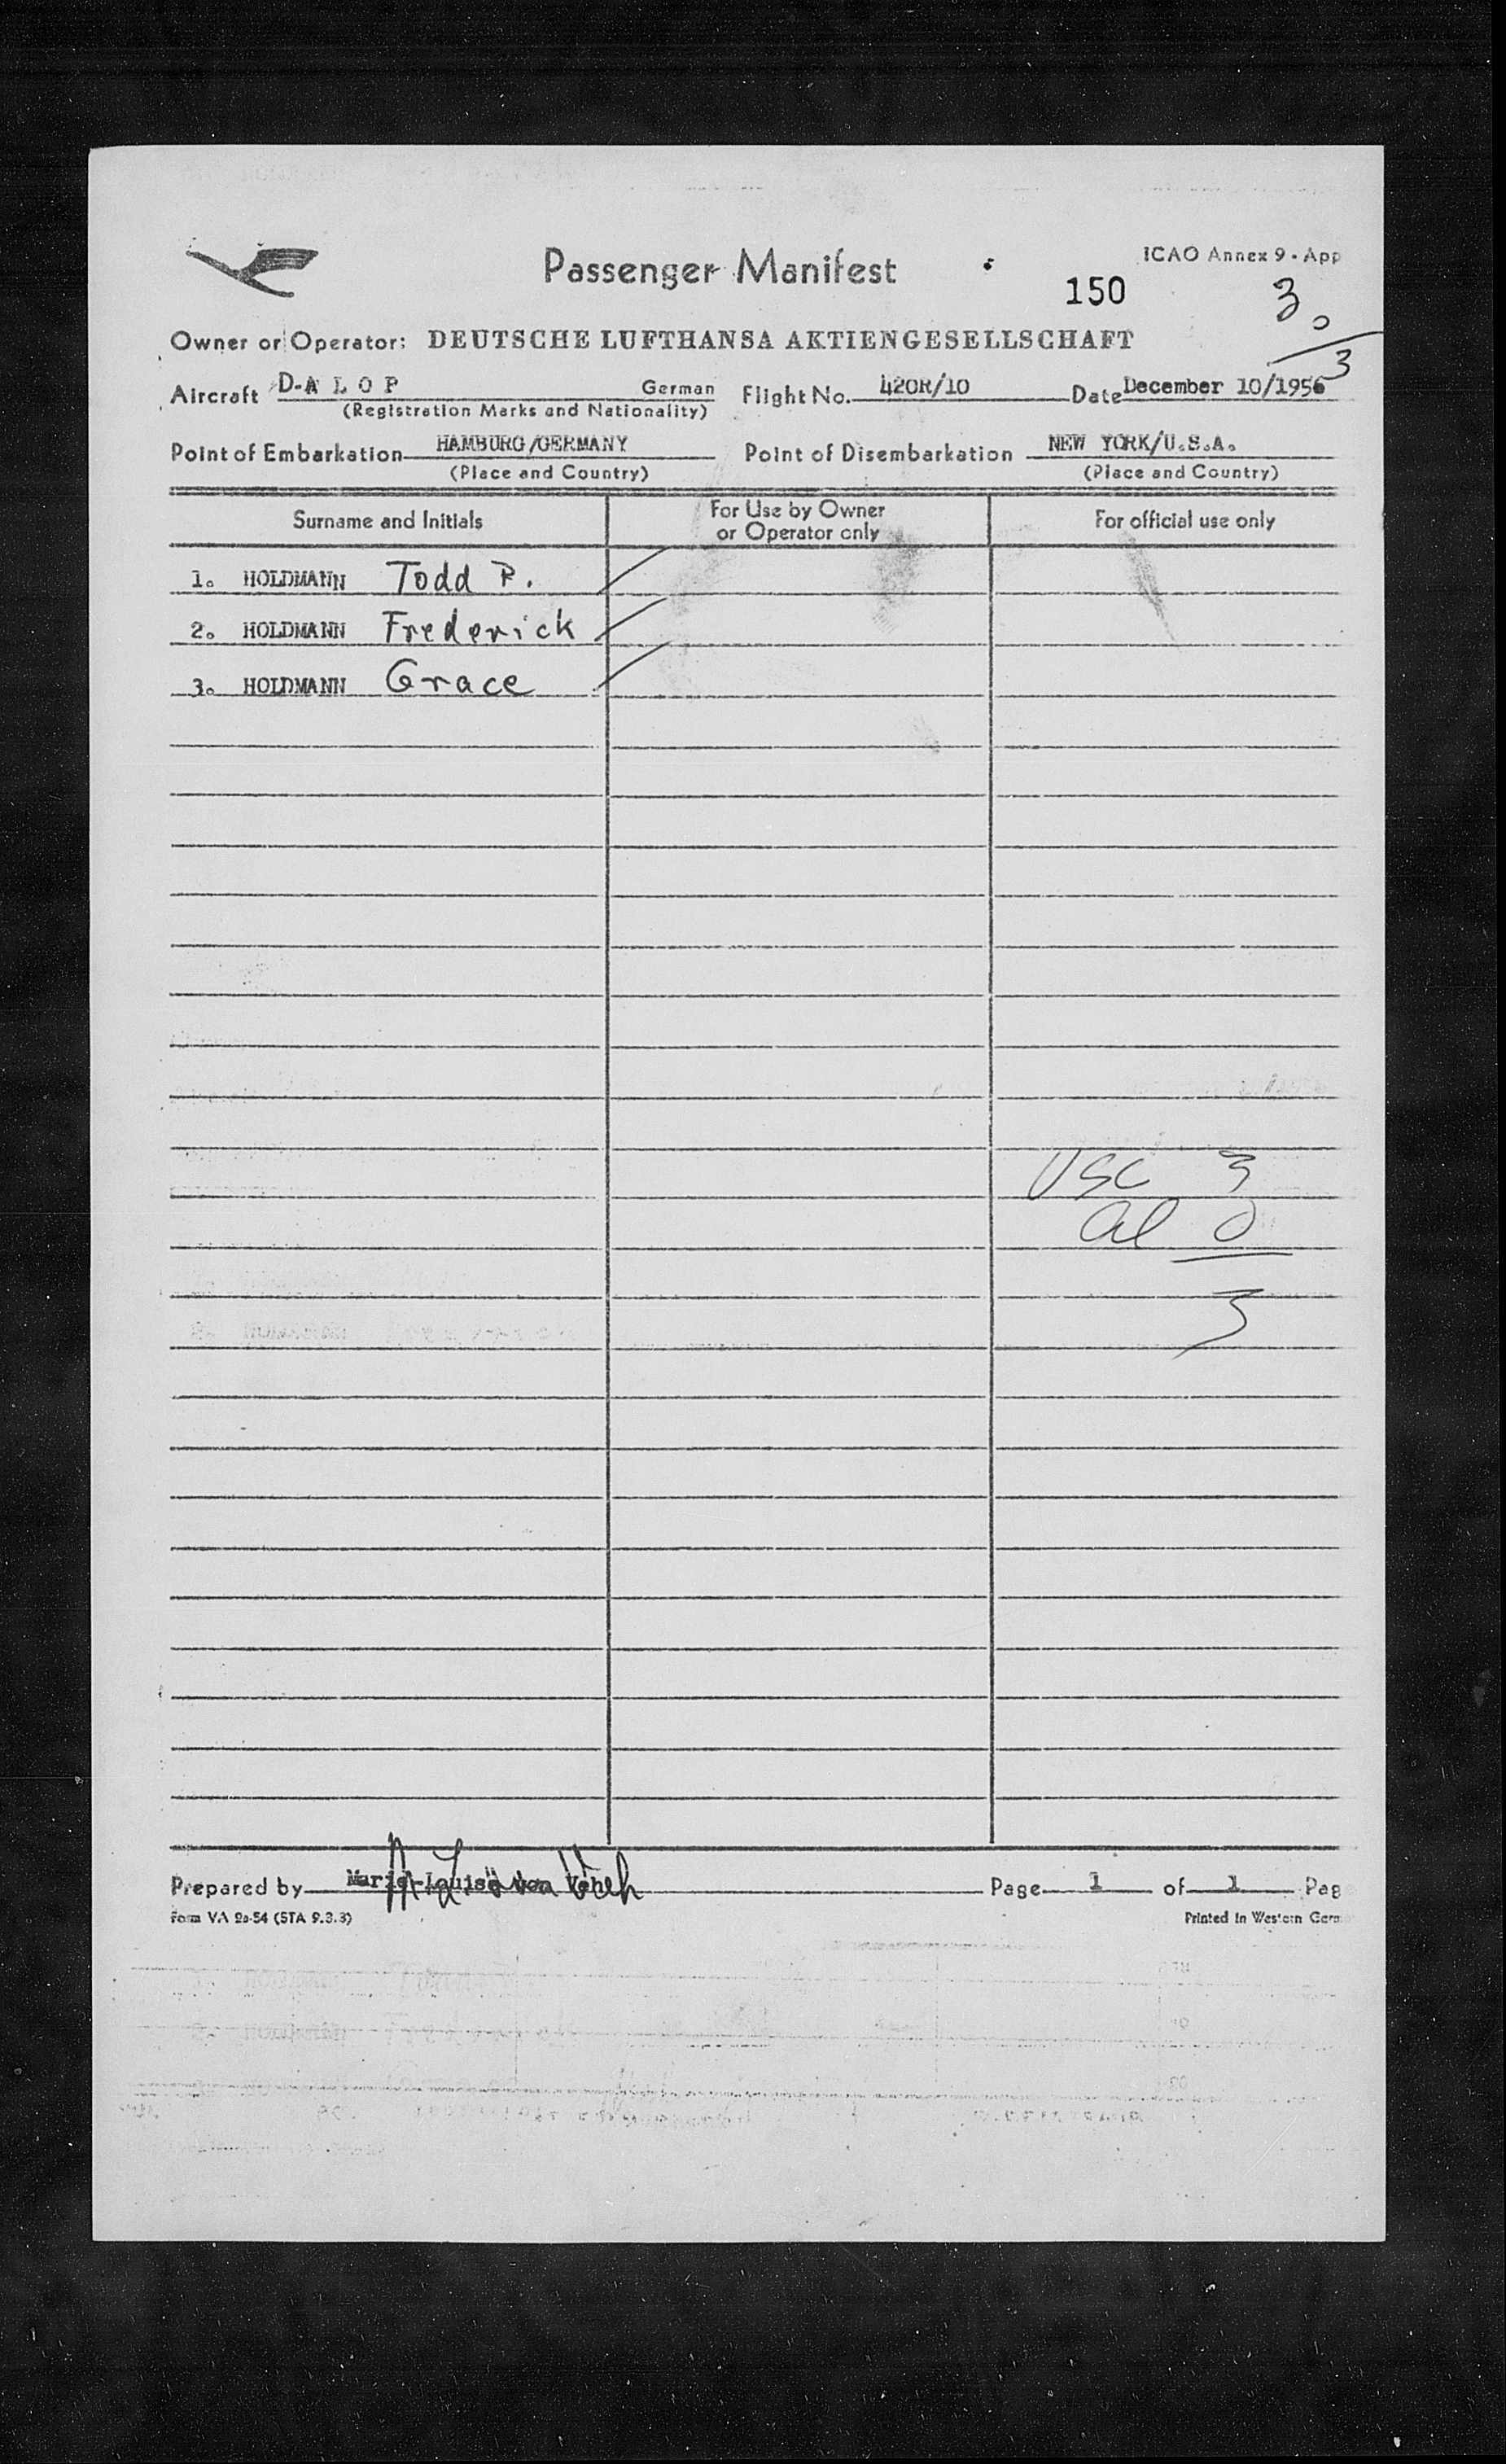 Passenger Manifest
ICAO Annex 9 - App
150
3
0
3
Owner or Operator: DEUTSCHE LUFTHANSA AKTIENGESELLSCHAFT
Aircraft D-A L O P German Flight No. 420R/10 Date December 10/1956
(Registration Marks and Nationality)
Point of Embarkation HAMBURG/GERMANY Point of Disembarkation NEW YORK/U.S.A.
(Place and Country) (Place and Country)
Surname and Initials For Use by Owner or Operator only For official use only
1. HOLDMANN Todd P.
2. HOLDMANN Frederick
3. HOLDMANN Grace
USC 3
al 0
3
Prepared by Marie-Louise von Page 1 of 1 Pag
Form VA 2a-54 (STA 9.3.3) Printed in Western Germ